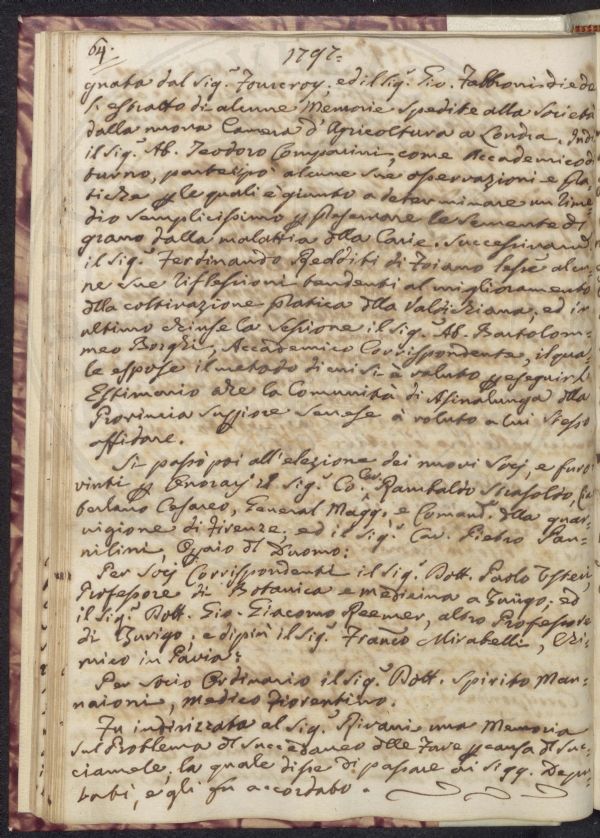 64.
1797.
gnata dal Sig.r Fourcroy, ed il Sig.r Gio. Fabbroni diede
l'estratto di alcune Memorie spedite alla Società
dalla nuova Camera d'Agricoltura a Londra. Indi
il Sig.r Ab. Teodoro Comparini, come Accademico di
turno, partecipò alcune sue osservazioni e pra
tiche p le quali è giunto a determinare un rime=
dio semplicissimo p preservare le semente di
grano dalla malattia dlla Carie. Successivam.
il Sig.r Ferdinando Redditi di Foiano lesse alcu=
ne sue riflessioni tendenti al miglioramento
dlla coltivazione pratica dlla Valdichiana, ed in
ultimo chiuse la sessione il Sig.r Ab. Bartolom=
meo Borghi, Accademico Corrispondente, il qua=
le espose il metodo di cui si è valuto p eseguir l'
Estimonio che la Comunità di Asinalunga dlla
Provincia Supiore Senese à voluto a lui stesso
affidare.
Si passò poi all'elezione dei nuovi Socj, e furo
vinti p Onorarj il Sig.r Co. Cav. Rambaldo Strasoldo, Cia
berlano Cesareo, General Magg. e Comand. dlla guar=
nigione di Firenze; ed il Sig.r Cav. Pietro Pan=
nilini, Opaio dl Duomo:
Per Socj Corrispondenti il Sig.r Dott. Paolo Usteri,
Professore di Botanica e medicina a Zurigo, ed
il Sig.r Dott. Gio. Giacomo Reemer, altro Professore
di Zurigo; e di più il Sig.r Franco Mirabelli, Chi=
mico in Pavia:
Per Socio Ordinario il Sig.r Dott. Spirito Man=
naioni, Medico Fiorentino.
Fu indirizzata al Sig.r Rivani una Memoria
sul Problema dl Succedaneo dlle fave p causa dl Suc=
ciamele, la quale disse di passare ai Sigg. Depu=
tati, e gli fu accordato.